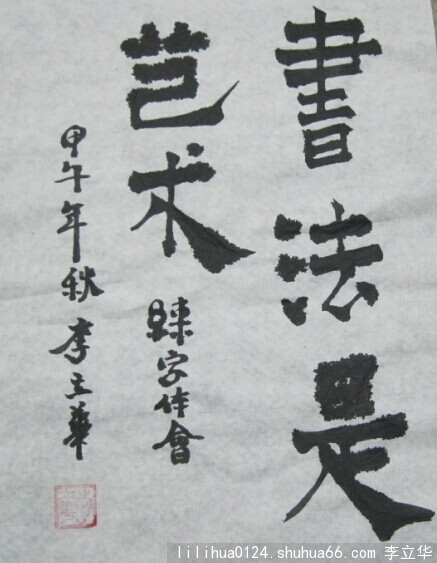 書法是
艺术
練字体會
甲午年秋 李立華
lilihua0124.shuhua66.com 李立华